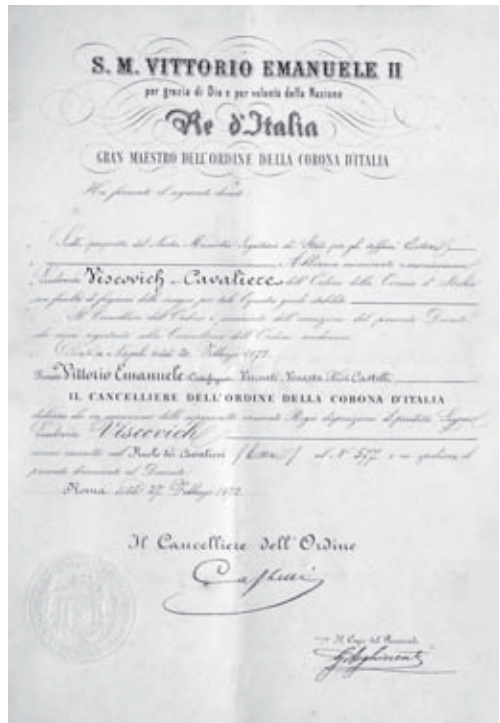 S. M. VITTORIO EMANUELE II
per grazia di Dio e per volontà della Nazione
Re d'Italia
GRAN MAESTRO DELL'ORDINE DELLA CORONA D'ITALIA
Ha firmato il seguente decreto
Sulla proposta del Nostro Ministro Segretario di Stato per gli affari Esteri
Abbiamo nominato e nominiamo
Viscovich Cavaliere dell'Ordine della Corona d'Italia
con facoltà di fregiarsi delle insegne per tale Equestre grado stabilite
Il Cancelliere dell'Ordine è incaricato dell'esecuzione del presente Decreto
che sarà registrato alla Cancelleria dell'Ordine medesimo
Napoli addì Febbraio 1872
Vittorio Emanuele Visconti Venosta
IL CANCELLIERE DELL'ORDINE DELLA CORONA D'ITALIA
dichiara che in esecuzione delle Regie disposizioni il
Viscovich
venne inscritto nel Ruolo dei Cavalieri (Esteri) al N° 577 e ne spedisce il
presente documento al Decorato
Roma addì 27 Febbraio 1872
Il Cancelliere dell'Ordine
Il Capo del Personale